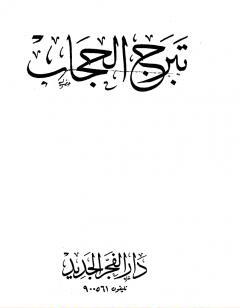 تبرج الحجاب
دار الفجر الجديد
تليفون ٩٠٠٥٦١